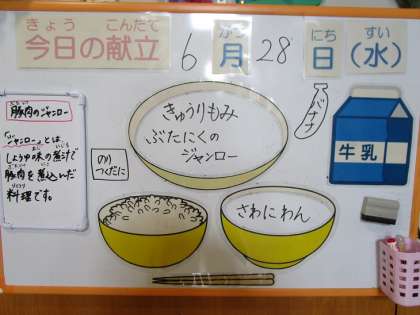 きょう こんだて
今日の献立
6
がつ
月
28
にち
日
すい
(水)
豚肉のジャンロー
「ジャンロー」とは
しょうゆ味の煮汁で
豚肉を煮込んだ
料理です。
のり
つくだに
きゅうりもみ
ぶたにくの
ジャンロー
バナナ
牛乳
さわにわん